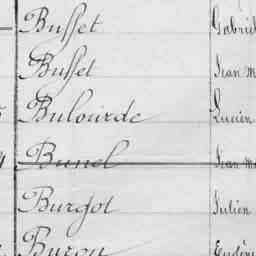 Busset Gabriel
Busset Jean M
Bulourde Lucien
Bunel Jean M
Burgot Julien
Burou Eugène